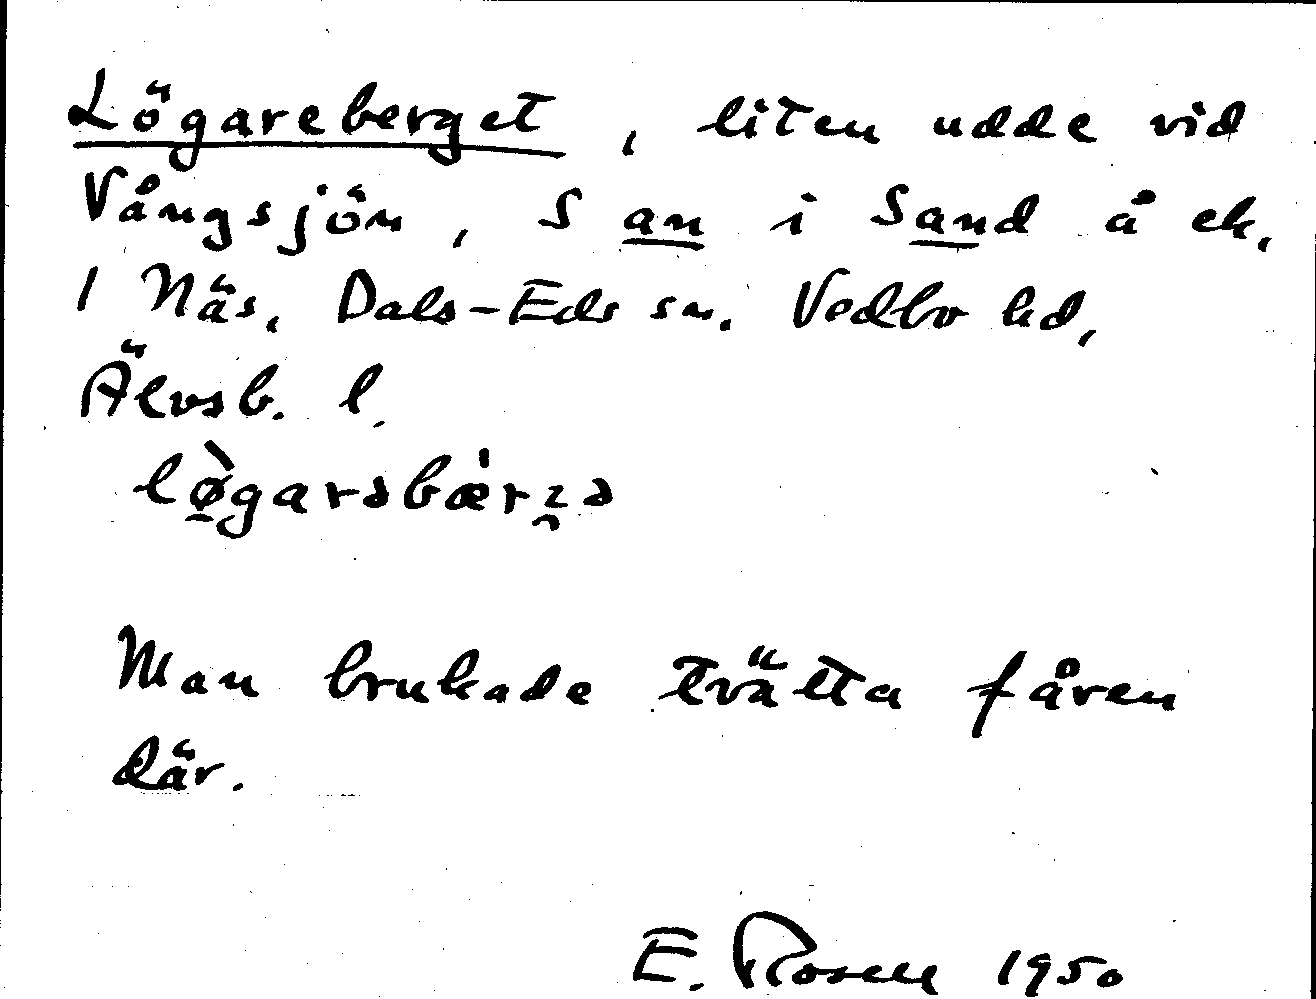 Lögareberget, liten udde vid
Vångsjön, S an i Sand å ek.
1 Näs, Dals-Eds sn. Vedbo hd,
Älvsb. l.
Man brukade tvätta fåren
där.
E. Rosell 1950